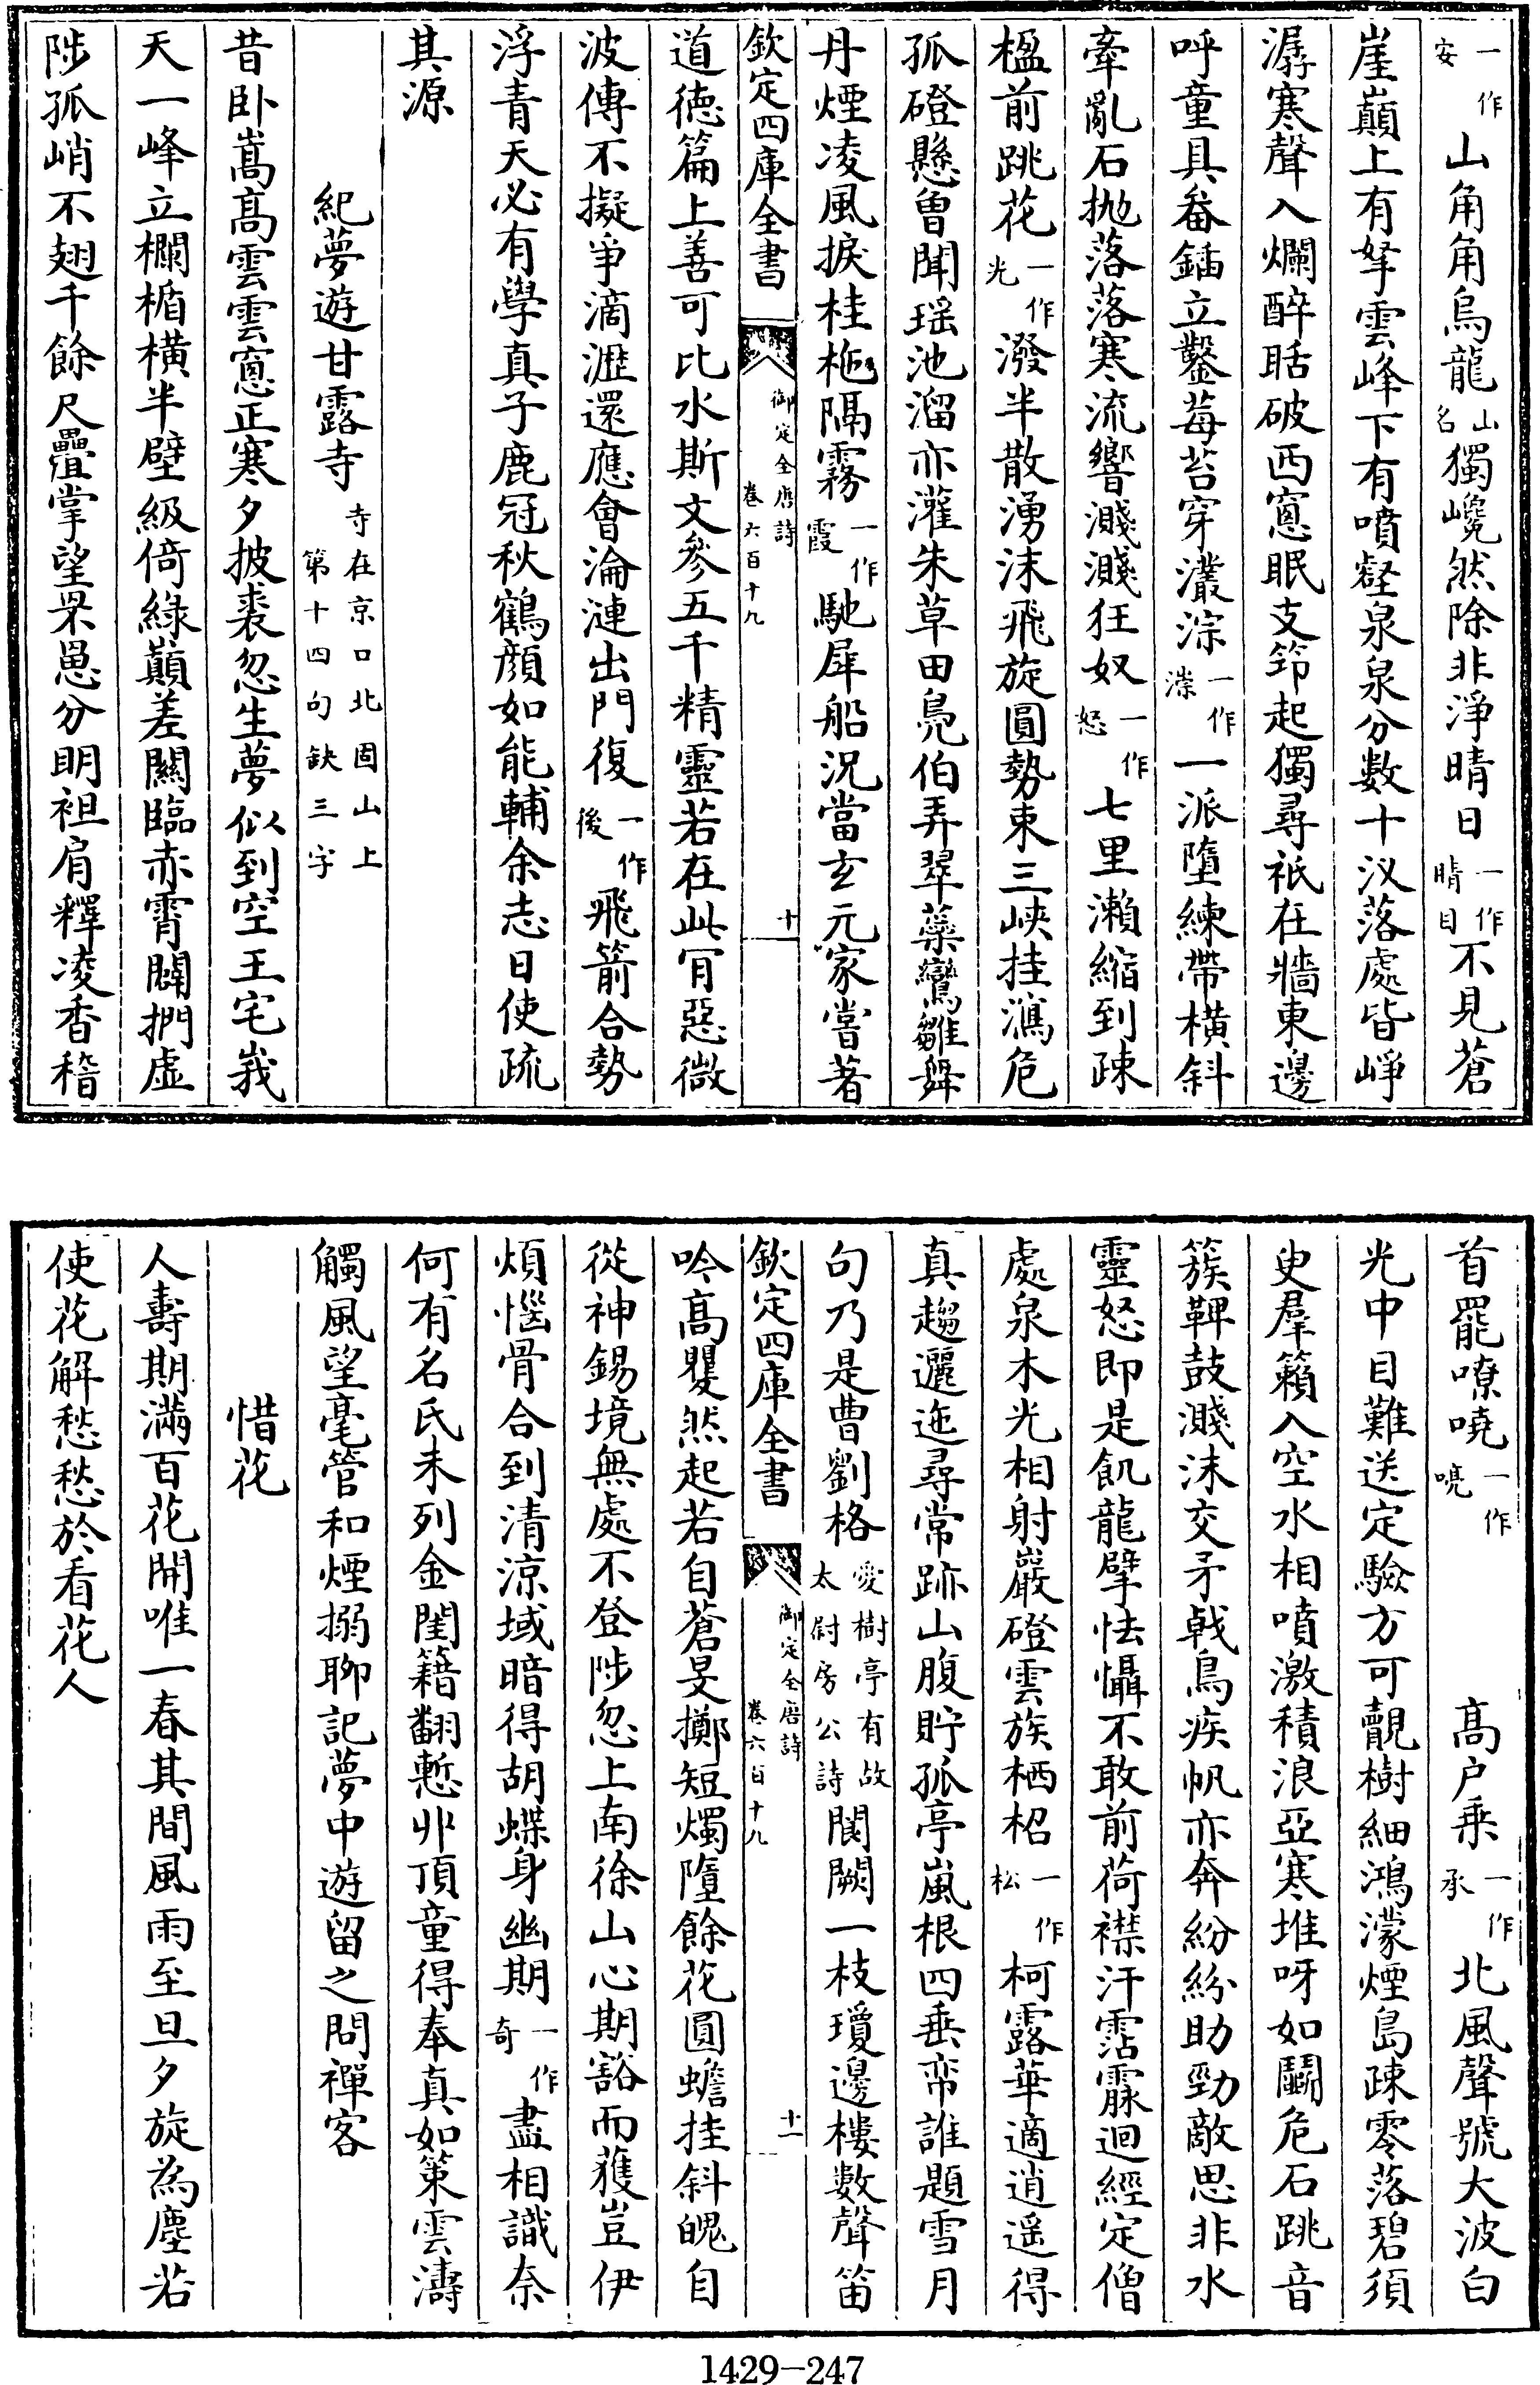 一作安山角角烏龍山名獨巉然除非淨晴日一作晴目不見蒼
崖巔上有孥雲峰下有噴壑泉泉分數十汊落處皆崢
潺寒聲入爛醉聒破西窻眠支筇起獨尋祇在牆東邊
呼童具畚鍤立鑿莓苔穿灇淙一作漴一派墮練帶橫斜
牽亂石拋落落寒流響濺濺狂奴一作怒七里瀨縮到疎
楹前跳花一作光潑半散湧沫飛旋圓勢束三峽挂瀉危
孤磴懸曾聞瑶池溜亦灌朱草田鳧伯弄翠蘂鸞雛舞
丹煙凌風捩桂柂隔霧一作霞馳犀船況當玄元家嘗著
欽定四庫全書 御定全唐詩 卷六百十九 十
道徳篇上善可比水斯文參五千精靈若在此肎惡微
波傳不擬爭滴瀝還應會淪漣出門復一作後飛箭合勢
浮青天必有學真子鹿冠秋鶴顔如能輔余志日使疏
其源
紀夢遊甘露寺寺在京口北固山上第十四句缺三字
昔卧嵩髙雲雲窻正寒夕披裘忽生夢似到空王宅峩
天一峰立欄楯橫半壁級倚綠巔差關臨赤霄闢捫虚
陟孤峭不翅千餘尺疊掌望罘罳分明袒肩釋凌香稽
首罷嘹嘵一作喨 髙户乗一作承北風聲號大波白
光中目難送定驗方可覿樹細鴻濛煙島疎零落碧須
臾羣籟入空水相噴激積浪亞寒堆呀如鬭危石跳音
簇鞞鼓濺沫交矛㦸鳥疾帆亦奔紛紛助勁敵思非水
靈怒即是飢龍擘怯懾不敢前荷襟汗霑霢迴經定僧
處泉木光相射巖磴雲族栖柖一作松柯露華適逍遥得
真趨邐迤尋常跡山腹貯孤亭嵐根四垂帟誰題雪月
句乃是曹劉格愛樹亭有故太尉房公詩閡闕一枝瓊邊樓數聲笛
欽定四庫全書 御定全唐詩 卷六百十九 十一
吟髙矍然起若自蒼旻擲短燭隨餘花圓蟾挂斜魄自
從神錫境無處不登陟忽上南徐山心期豁而獲豈伊
煩惱骨合到清涼域暗得胡蝶身幽期一作奇盡相識奈
何有名氏未列金閨籍翻慙丱頂童得奉真如策雲濤
觸風望毫管和煙搦聊記夢中遊留之問禪客
惜花
人壽期滿百花開唯一春其間風雨至旦夕旋為塵若
使花解愁愁於看花人
1429-247